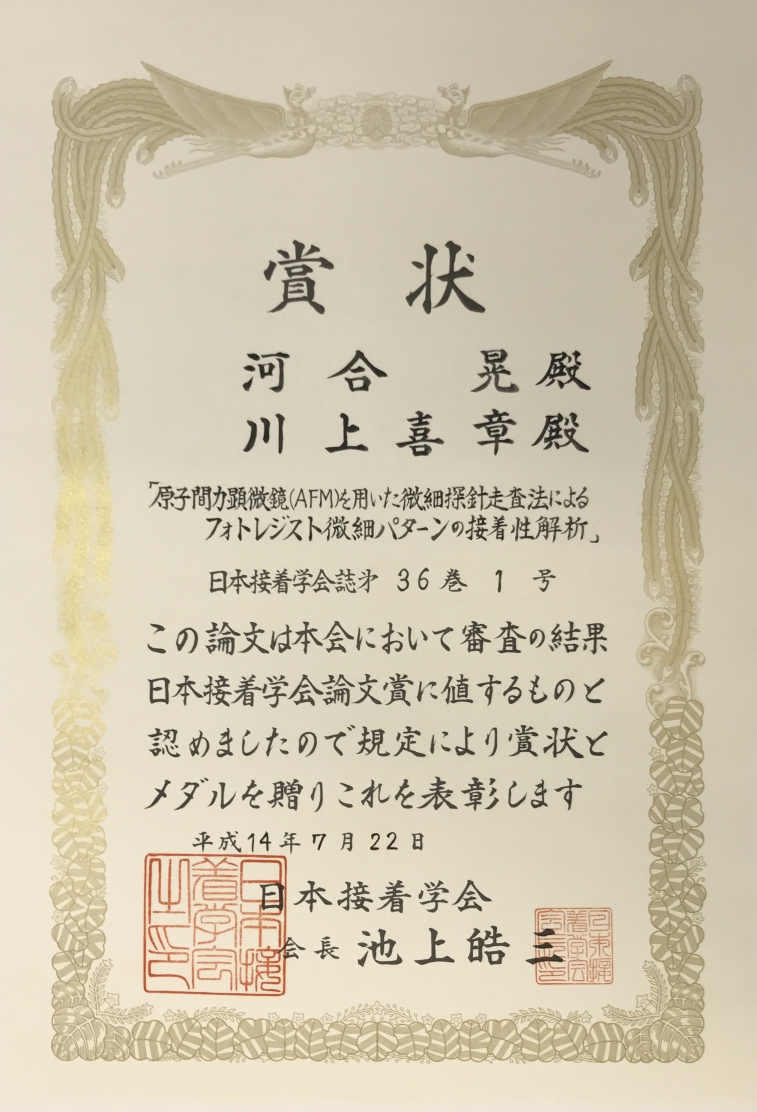 賞状
河合 晃殿
川上喜章殿
「原子間力顕微鏡(AFM)を用いた微細探針走査法による
フォトレジスト微細パターンの接着性解析」
日本接着学会誌㐧 36巻 1号
この論文は本会において審査の結果
日本接着学会論文賞に値するものと
認めましたので規定により賞状と
メダルを贈りこれを表彰します
平成14年7月22日
日本接着学会
会長 池上皓三
日本接着学会之印